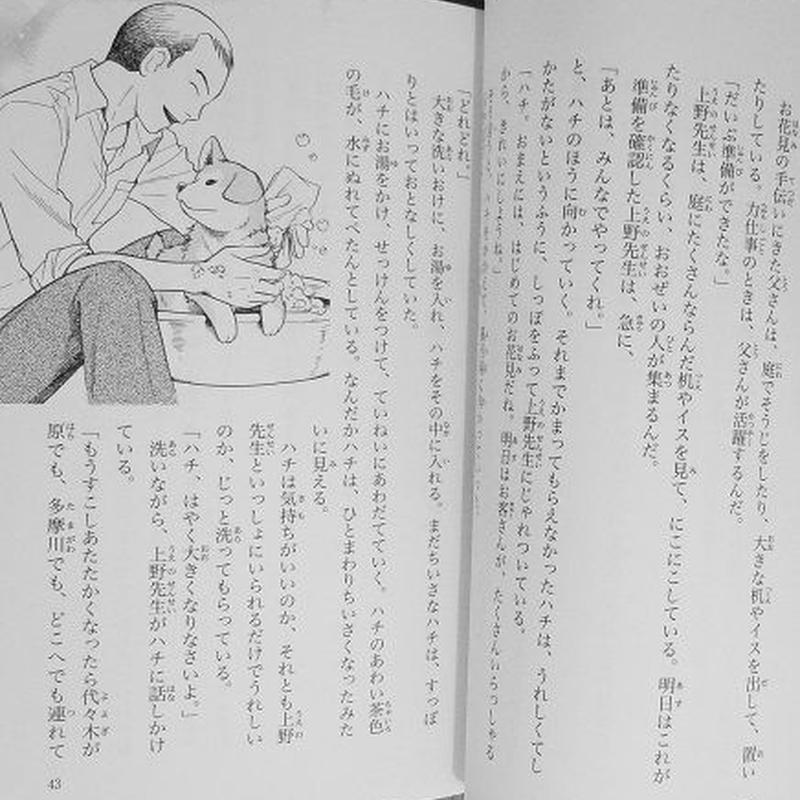 お花見の手伝いにきた父さんは、庭でそうじをしたり、大きな机やイスを出して、置い
たりしている。力仕事のときは、父さんが活躍するんだ。
「だいぶ準備ができたな。」
上野先生は、庭にたくさんならんだ机やイスを見て、にこにこしている。明日はこれが
たりなくなるくらい、おおぜいの人が集まるんだ。
準備を確認した上野先生は、急に、
「あとは、みんなでやってくれ。」
と、ハチのほうに向かっていく。それまでかまってもらえなかったハチは、うれしくてし
かたがないというふうに、しっぽをふって上野先生にじゃれついている。
「ハチ。おまえには、はじめてのお花見だね。明日はお客さんが、たくさんいらっしゃる
から、きれいにしようね。」
「どれどれ。」
大きな洗いおけに、お湯を入れ、ハチをその中に入れる。まだちいさなハチは、すっぽ
りとはいっておとなしくしていた。
ハチにお湯をかけ、せっけんをつけて、ていねいにあわだてていく。ハチのあわい茶色
の毛が、水にぬれてぺたんとしている。なんだかハチは、ひとまわりちいさくなったみた
いに見える。
ハチは気持ちがいいのか、それとも上野
先生といっしょにいられるだけでうれしい
のか、じっと洗ってもらっている。
「ハチ、はやく大きくなりなさいよ。」
洗いながら、上野先生がハチに話しかけ
ている。
「もうすこしあたたかくなったら代々木が
原でも、多摩川でも、どこへでも連れて
43